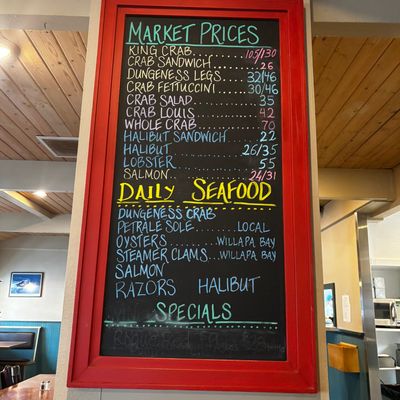 MARKET PRICES
KING CRAB........105/130
CRAB SANDWICH........26
DUNGENESS LEGS....32/46
CRAB FETTUCCINI.....30/46
CRAB SALAD........35
CRAB LOUIS........42
WHOLE CRAB........70
HALIBUT SANDWICH......22
HALIBUT........26/35
LOBSTER........55
SALMON........24/31
DAILY SEAFOOD
DUNGENESS CRAB
PETRALE SOLE.......LOCAL
OYSTERS........WILLAPA BAY
STEAMER CLAMS...WILLAPA BAY
SALMON
RAZORS HALIBUT
SPECIALS